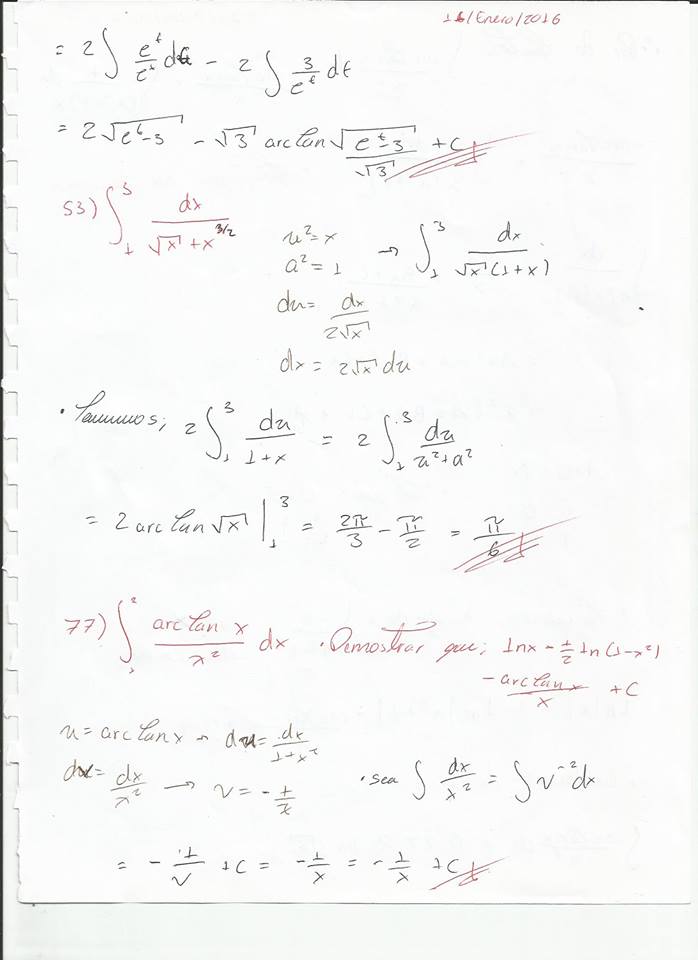 16/Enero/2016
= 2 ∫ e^t/e^t dt - 2 ∫ 3/e^t dt
= 2√(e^t-3) - √3 arctan √(e^t-3)/√3 + C
53) ∫_1^3 dx/(√x + x^(3/2))
u² = x → ∫_1^3 dx/(√x (1+x))
a² = 1
du = dx/(2√x)
dx = 2√x du
2 ∫_1^3 du/(1+x) = 2 ∫_1^3 du/(u²+a²)
= 2 arc tan √x |_1^3 = 2π/3 - π/2 = π/6
77) ∫ arc tan x/x² dx · Demostrar que; lnx - 1/2 ln(1-x²)
- arc tan x/x + C
u = arc tan x → du = dx/(1+x²)
dv = dx/x² → v = -1/x · sea ∫ dx/x² = ∫ v^-2 dx
= -1/v + C = -1/x = -1/x + C